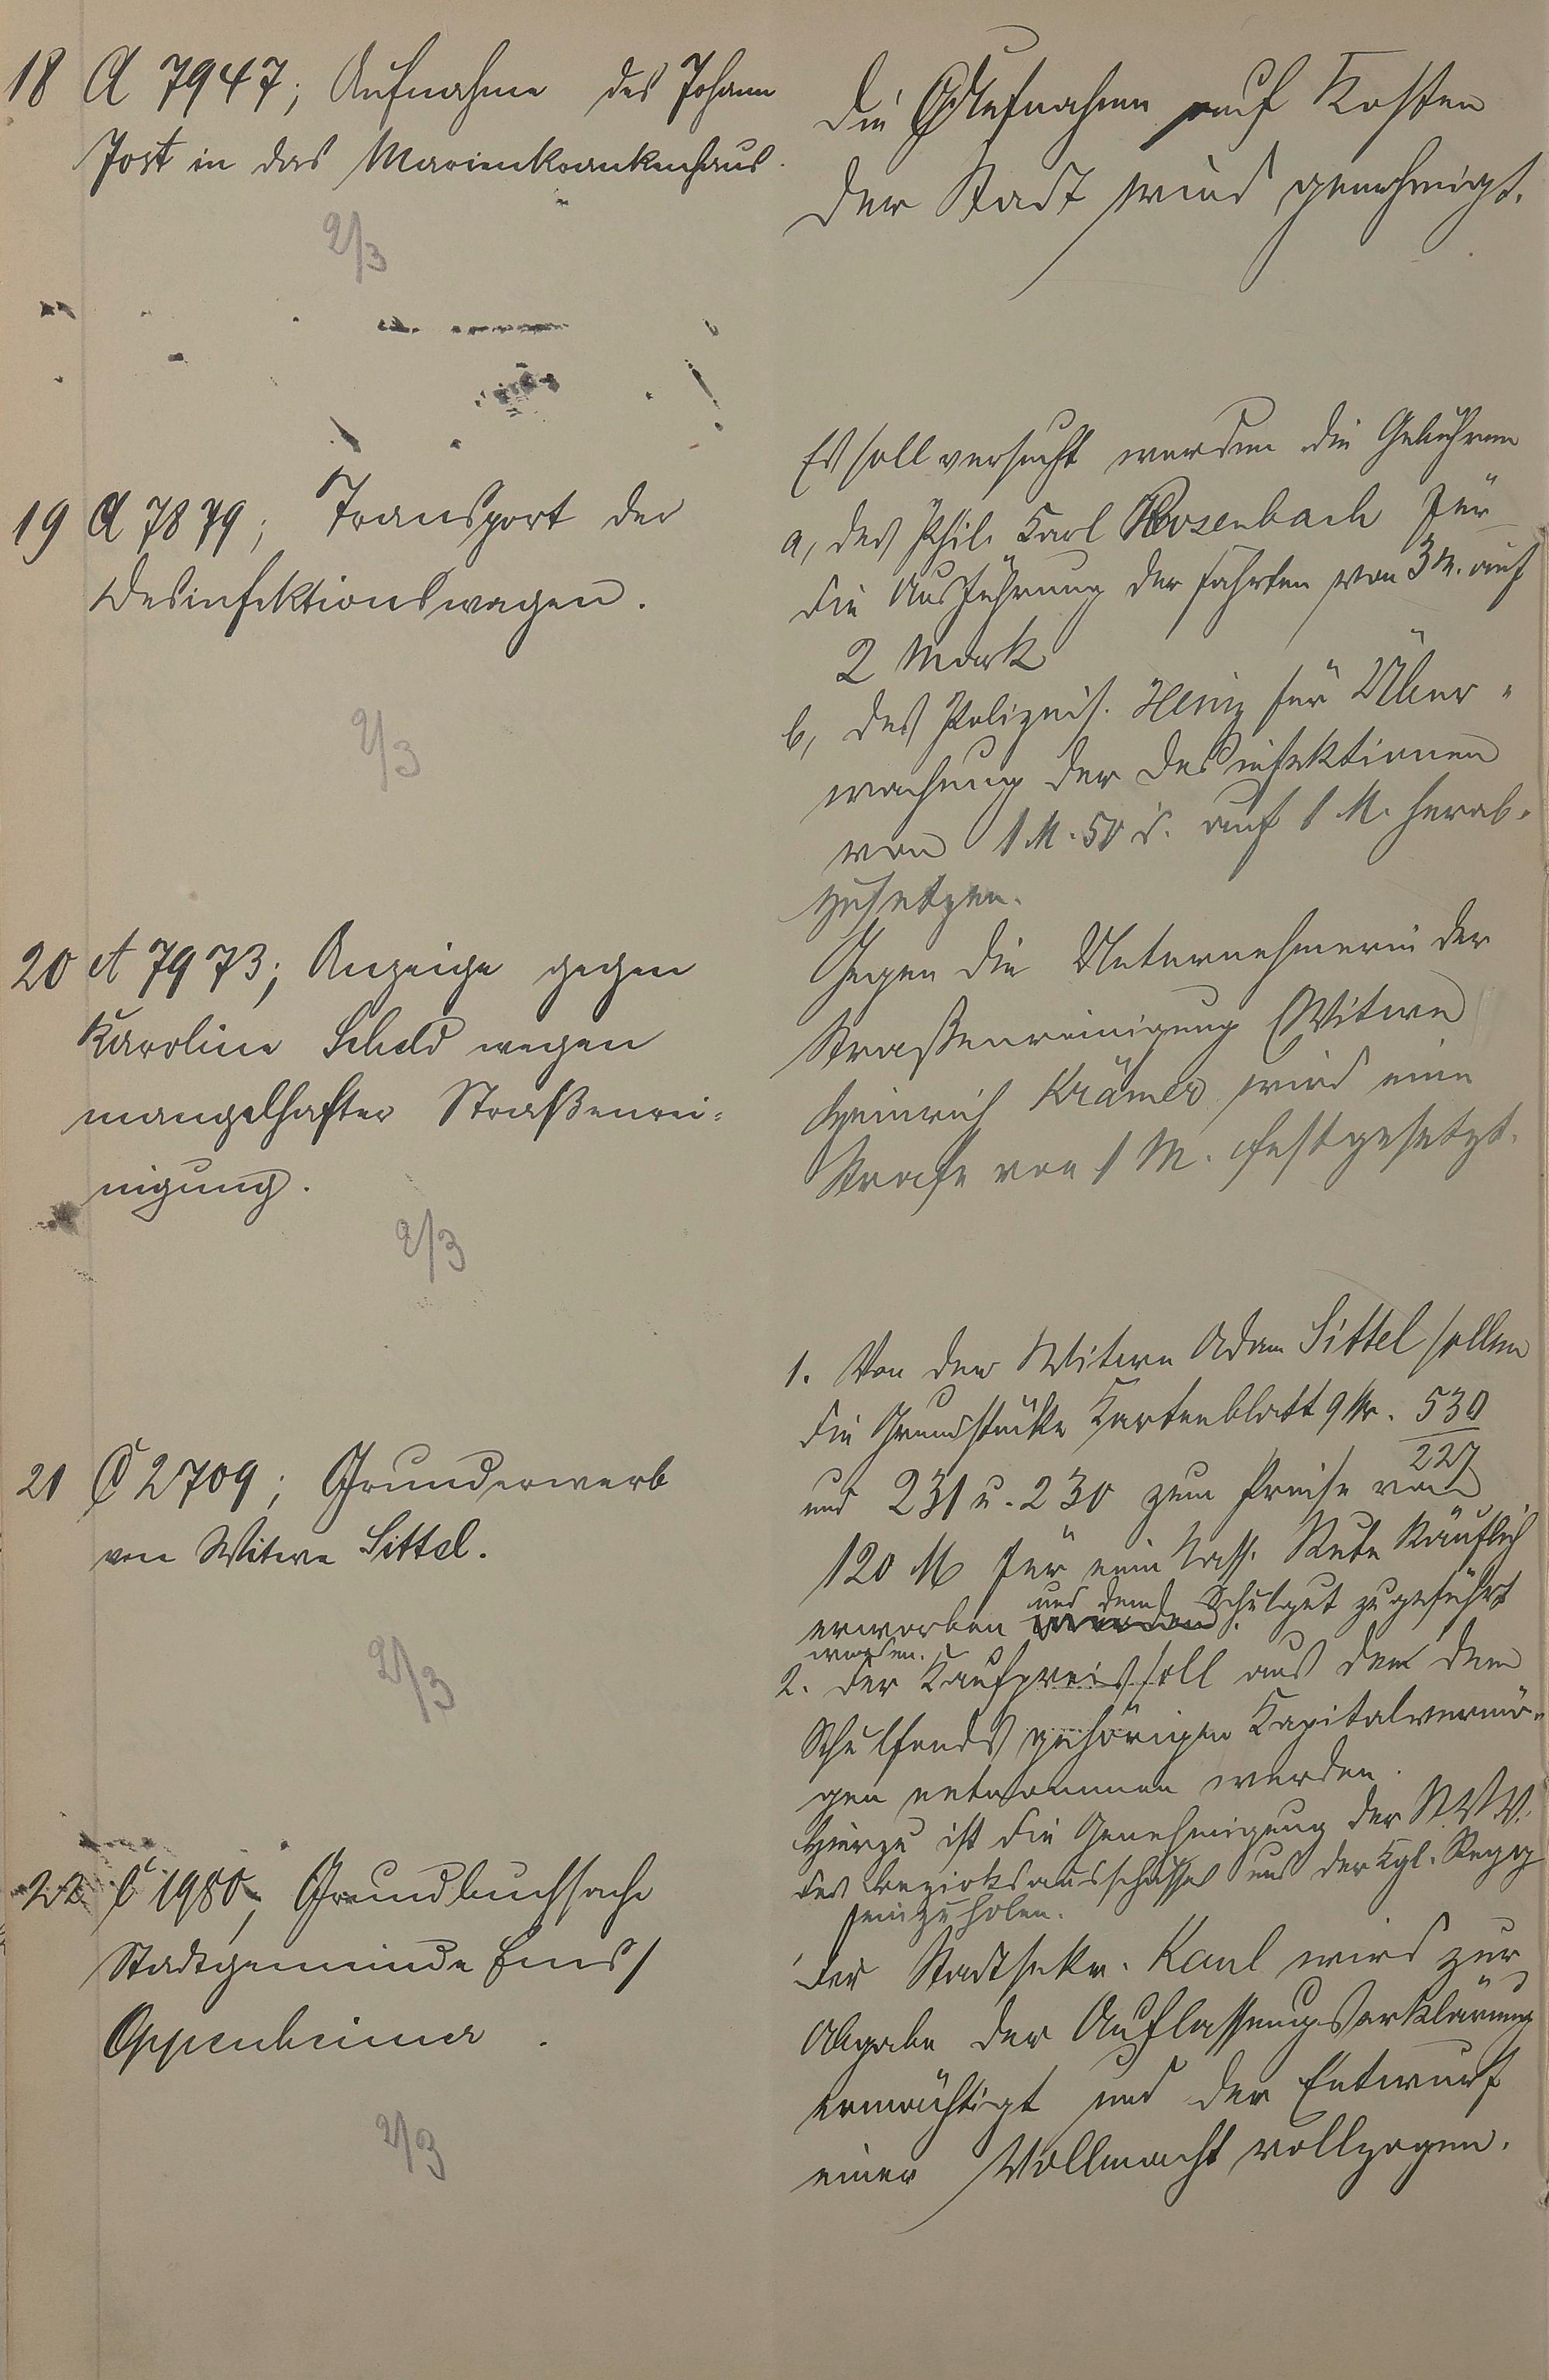 18 A 7947; Aufnahme des Johann
Jost in das Marienkrankenhaus.
2/3
Die Aufnahme auf Kosten
der Stadt wird genehmigt.
19 A 7879; Transport der
Desinfektionswagen.
2/3
Es soll versucht werden die Gebühren
a, des Phil. Karl Rosenbach für
die Ausführung der Fahrten von 3 M. auf
2 Mark
b, des Polizeis. Heinz für Über-
wachung der Desinfektionen
von 1 M. 50 d. auf 1 M. herab-
zusetzen.
20 A 7973; Anzeige gegen
Karoline Scheld wegen
mangelhafter Straßenrei-
nigung.
2/3
Gegen die Unternehmerin der
Straßenreinigung Witwe
Heinrich Krämer wird eine
Strafe von 1 M. festgesetzt.
21 C 2709; Grunderwerb
von Witwe Sittel.
2/3
1. Von der Witwe Adam Sittel sollen
die Grundstücke Kartenblatt 9 Nr. 530/227
und 231 u. 230 zum Preise von
120 M für eine Nass. Rute käuflich
erworben werden und dem Schulgut zugeführt
werden.
2. Der Kaufpreis soll aus dem dem
Schulfonds gehörigen Kapitalvermö-
gen entnommen werden.
Hierzu ist die Genehmigung der St. V. V.
des Bezirksausschusses und der Kgl. Regg
einzuholen.
22 C 1980; Grundbuchsache
Stadtgemeinde Ems/
Oppenheimer.
2/3
Der Stadtsekr. Kaul wird zur
Abgabe der Auflassungserklärung
ermächtigt und der Entwurf
einer Vollmacht vollzogen.